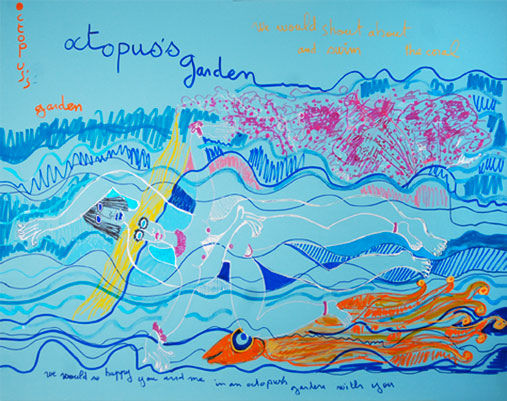 octopus's
octopus's
garden
garden
we would shout about
and swim the coral
we would so happy you and me in an octopush garden with you